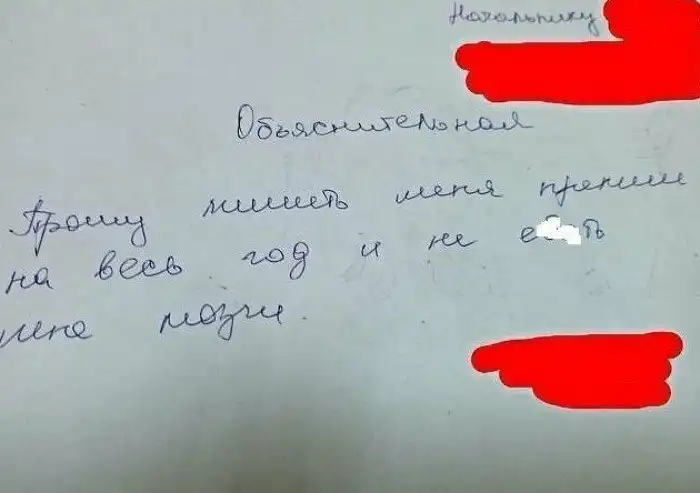 Начальнику
Объяснительная
Прошу лишить меня премии
на весь год и не е ть
мне мозги.